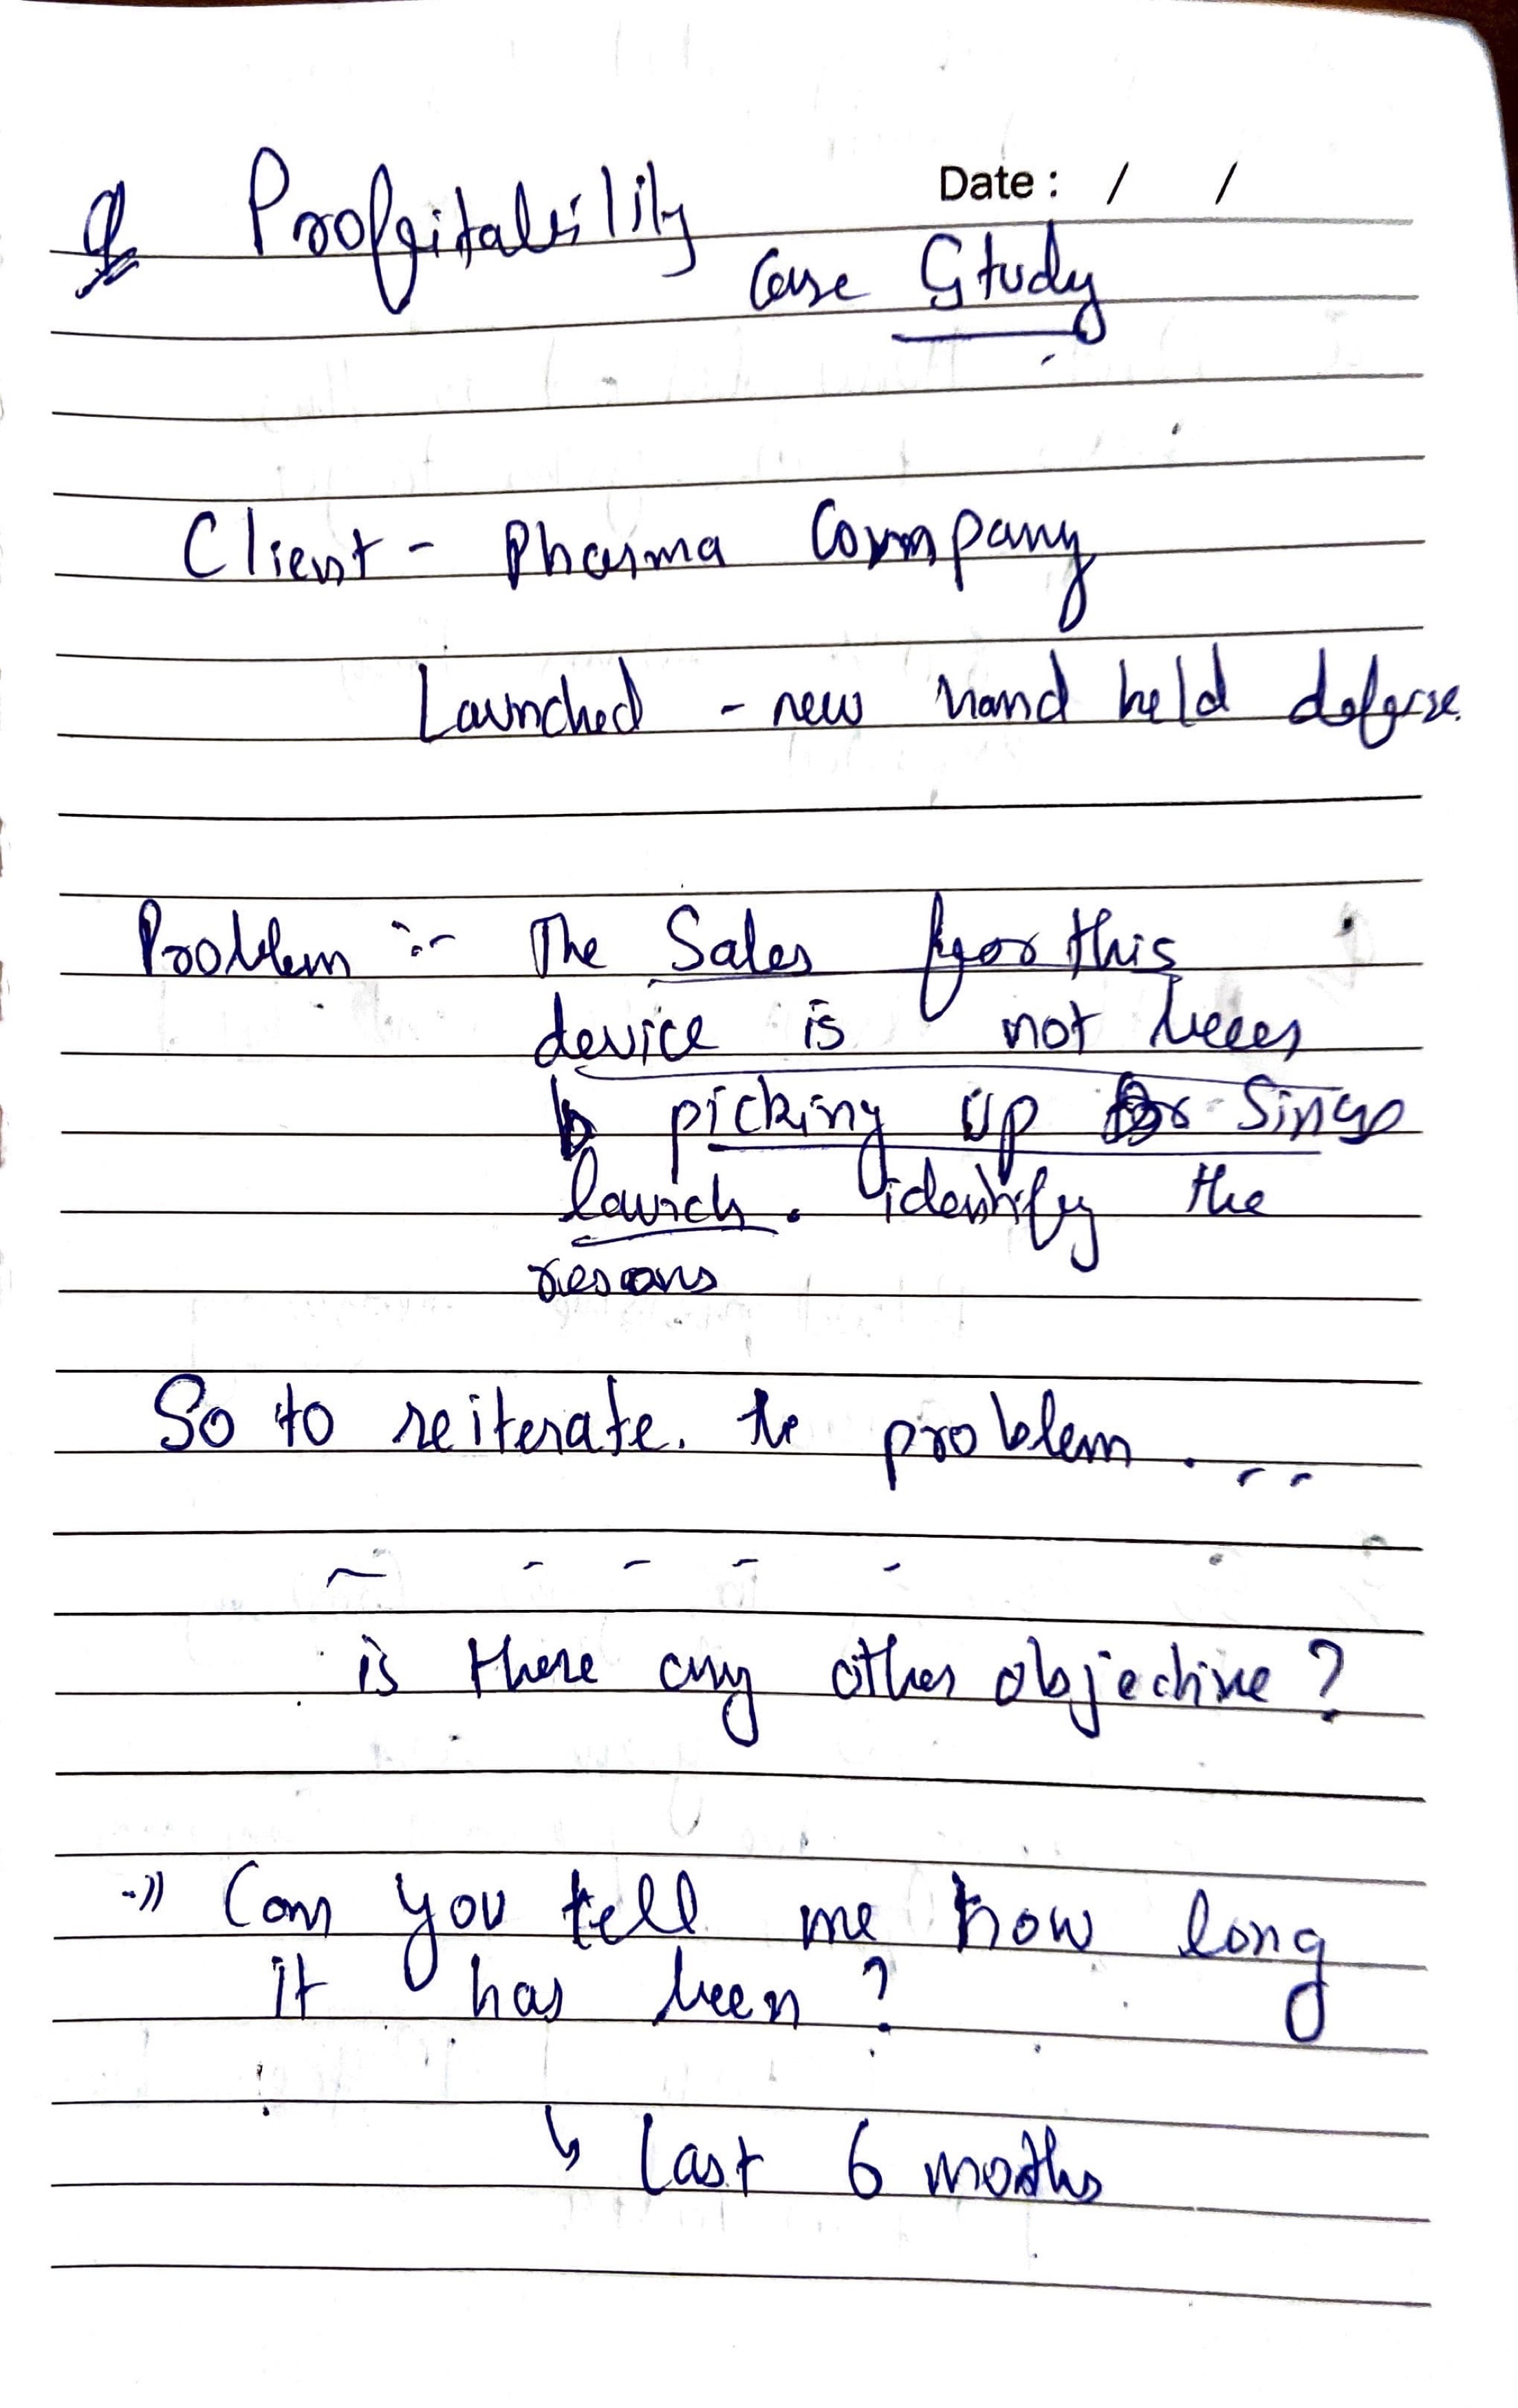 Q Profitability
Date : / /
Case Study
Client - Pharma Company
Launched - new hand held
Problem :- The Sales for this
device is not been
picking up Since
launch. identify the
resons
So to reiterate. the problem . - -
~ - - - -
is there any other objective ?
Can you tell me how long
it has been ?
↳ last 6 months